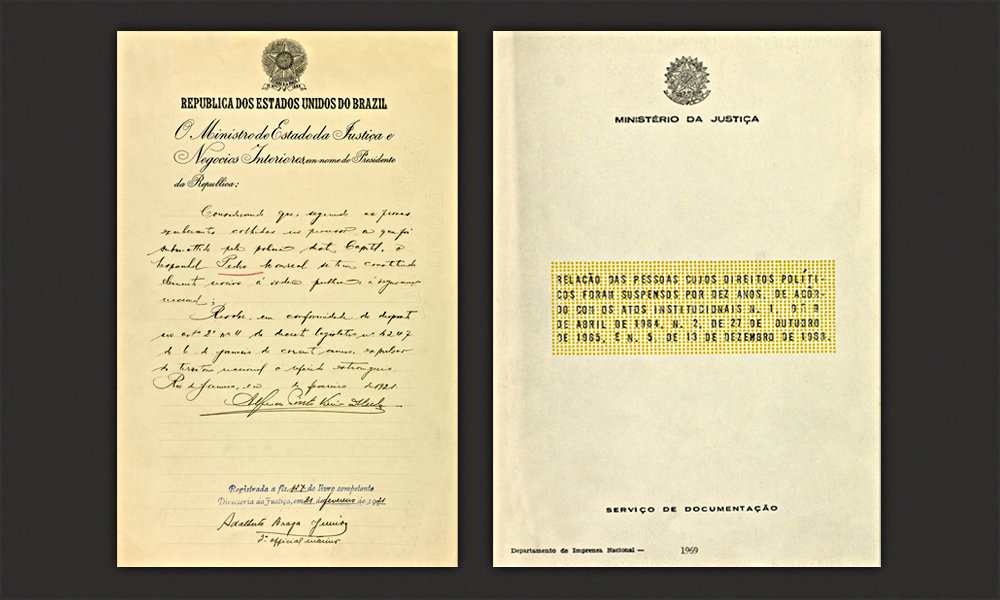 REPUBLICA DOS ESTADOS UNIDOS DO BRAZIL
O Ministro de Estado da Justiça e
Negocios Interiores, em nome do Presidente
da Republica:
Considerando que, segundo as provas
exuberantes colhidas no processo a que foi
submettido pela policia desta Capital, o
hespanhol Pedro Monreal se tem constituido
elemento nocivo á ordem publica e á segurança
nacional;
Resolve, em conformidade do disposto
no art. 2º nº 4 do decreto legislativo nº 4247
de 6 de janeiro do corrente anno, expulsar
do territorio nacional o referido estrangeiro.
Rio de Janeiro, em de fevereiro de 1921.
Alfredo Pinto Vieira de Mello
Registrada a fls. 127 do livro competente
Directoria da Justiça, em 21 de fevereiro de 1921
Adalberto Braga
3º official interino
MINISTÉRIO DA JUSTIÇA
RELAÇÃO DAS PESSOAS CUJOS DIREITOS POLÍTI-
COS FORAM SUSPENSOS POR DEZ ANOS, DE ACÔR-
DO COM OS ATOS INSTITUCIONAIS N. 1, D 9
DE ABRIL DE 1964, N. 2, DE 27 DE OUTUBRO
DE 1965, E N. 5, DE 13 DE DEZEMBRO DE 1968.
SERVIÇO DE DOCUMENTAÇÃO
Departamento de Imprensa Nacional — 1969